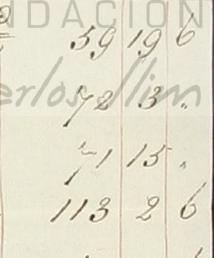 NDACIÓN
59 19 6
erlos Slim
72 3 "
71 15 "
113 2 6